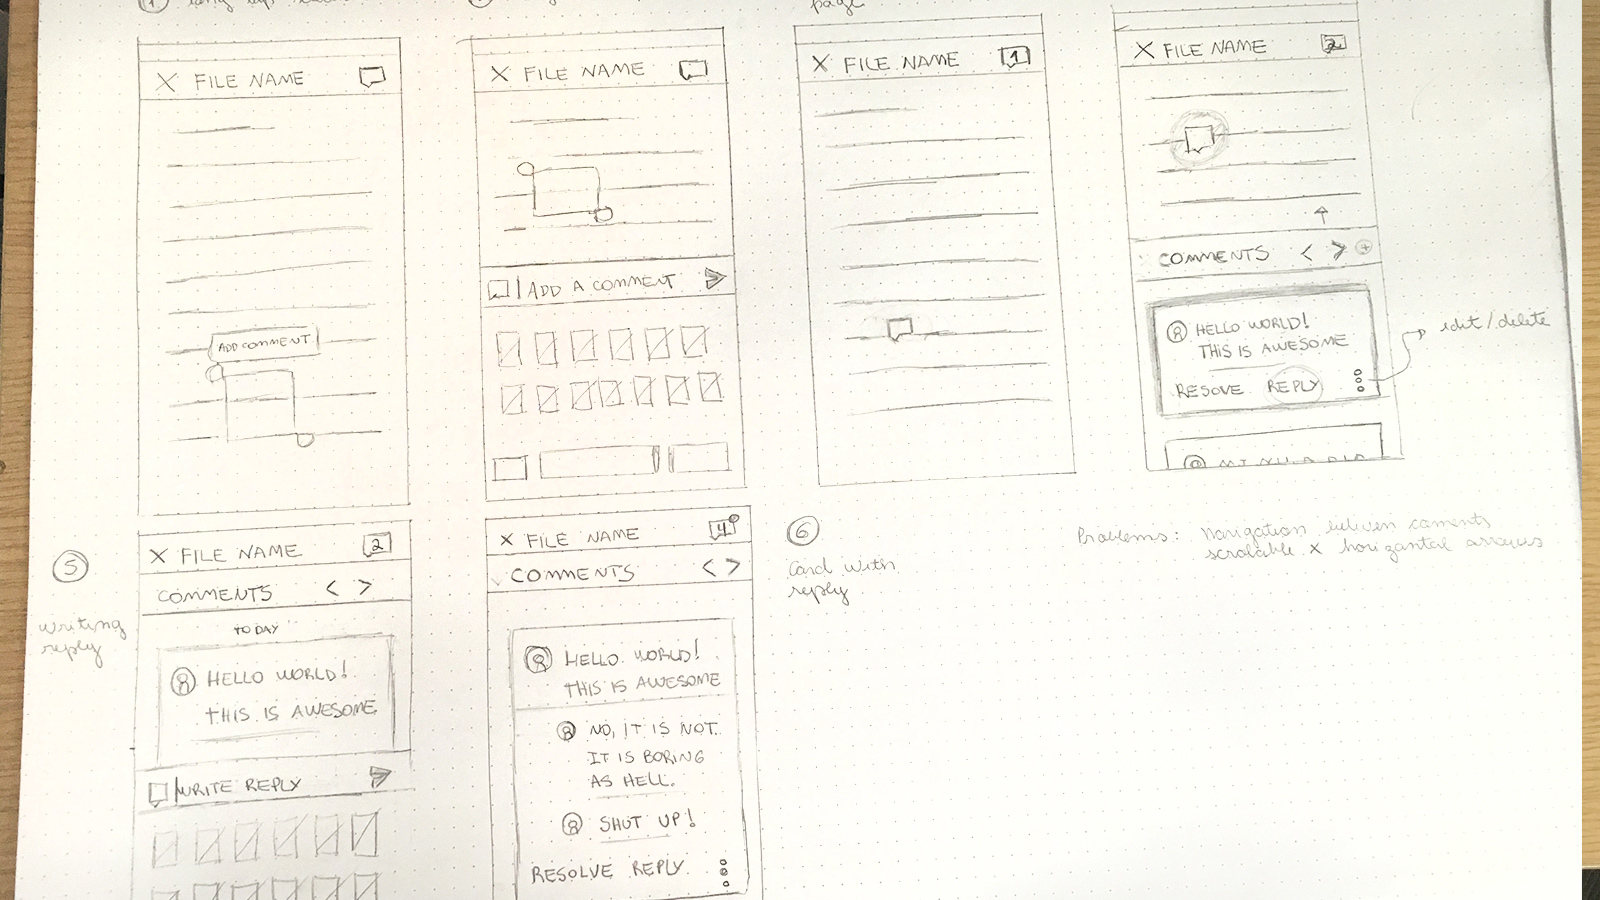 1
page
X FILE NAME
X FILE NAME
X FILE NAME 1
X FILE NAME 2
ADD COMMENT
ADD A COMMENT
COMMENTS < > +
HELLO WORLD!
THIS IS AWESOME
RESOVE REPLY
edit/delete
5
writing
reply
X FILE NAME 2
COMMENTS < >
TODAY
HELLO WORLD!
THIS IS AWESOME
WRITE REPLY
X FILE NAME 4
COMMENTS < >
HELLO WORLD!
THIS IS AWESOME
NO, IT IS NOT.
IT IS BORING
AS HELL.
SHUT UP!
RESOLVE REPLY
6
Card with
reply
Problems: Navigation between coments
scrolable X horizontal arrows